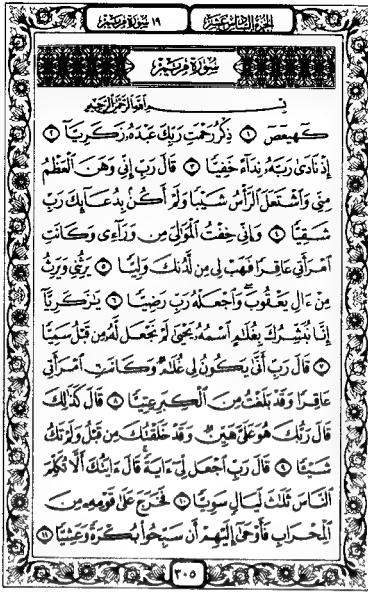 الجزء السادس عشر ١٩ سورة مريم
سورة مريم
بسم الله الرحمن الرحيم
كهيعص ١ ذِكْرُ رَحْمَتِ رَبِّكَ عَبْدَهُۥ زَكَرِيَّآ ٢
إِذْ نَادَىٰ رَبَّهُۥ نِدَآءً خَفِيًّا ٣ قَالَ رَبِّ إِنِّى وَهَنَ ٱلْعَظْمُ
مِنِّى وَٱشْتَعَلَ ٱلرَّأْسُ شَيْبًا وَلَمْ أَكُنۢ بِدُعَآئِكَ رَبِّ
شَقِيًّا ٤ وَإِنِّى خِفْتُ ٱلْمَوَٰلِىَ مِن وَرَآءِى وَكَانَتِ
ٱمْرَأَتِى عَاقِرًا فَهَبْ لِى مِن لَّدُنكَ وَلِيًّا ٥ يَرِثُنِى وَيَرِثُ
مِنْ ءَالِ يَعْقُوبَ ۖ وَٱجْعَلْهُ رَبِّ رَضِيًّا ٦ يَٰزَكَرِيَّآ
إِنَّا نُبَشِّرُكَ بِغُلَٰمٍ ٱسْمُهُۥ يَحْيَىٰ لَمْ نَجْعَل لَّهُۥ مِن قَبْلُ سَمِيًّا
٧ قَالَ رَبِّ أَنَّىٰ يَكُونُ لِى غُلَٰمٌ وَكَانَتِ ٱمْرَأَتِى
عَاقِرًا وَقَدْ بَلَغْتُ مِنَ ٱلْكِبَرِ عِتِيًّا ٨ قَالَ كَذَٰلِكَ
قَالَ رَبُّكَ هُوَ عَلَىَّ هَيِّنٌ وَقَدْ خَلَقْتُكَ مِن قَبْلُ وَلَمْ تَكُ
شَيْـًٔا ٩ قَالَ رَبِّ ٱجْعَل لِّىٓ ءَايَةً ۚ قَالَ ءَايَتُكَ أَلَّا تُكَلِّمَ
ٱلنَّاسَ ثَلَٰثَ لَيَالٍ سَوِيًّا ١٠ فَخَرَجَ عَلَىٰ قَوْمِهِۦ مِنَ
ٱلْمِحْرَابِ فَأَوْحَىٰٓ إِلَيْهِمْ أَن سَبِّحُوا۟ بُكْرَةً وَعَشِيًّا ١١
٣٠٥